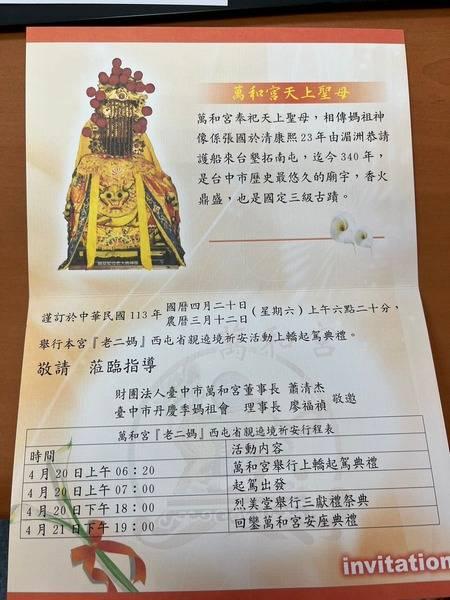 萬和宮天上聖母
萬和宮奉祀天上聖母，相傳媽祖神
像係張國於清康熙23年由湄洲恭請
護船來台墾拓南屯，迄今340年，
是台中市歷史最悠久的廟宇，香火
鼎盛，也是國定三級古蹟。
謹訂於中華民國113年 國曆四月二十日 農曆三月十二日 (星期六)上午六點二十分，
舉行本宮『老二媽』西屯省親遶境祈安活動上轎起駕典禮。
敬請 蒞臨指導
財團法人臺中市萬和宮董事長 蕭清杰
臺中市丹慶季媽祖會 理事長 廖福禎 敬邀
萬和宮『老二媽』西屯省親遶境祈安行程表
時間 活動內容
4月20日上午06:20 萬和宮舉行上轎起駕典禮
4月20日上午07:00 起駕出發
4月20日下午18:00 烈美堂舉行三獻禮祭典
4月21日下午19:00 回鑾萬和宮安座典禮
invitation